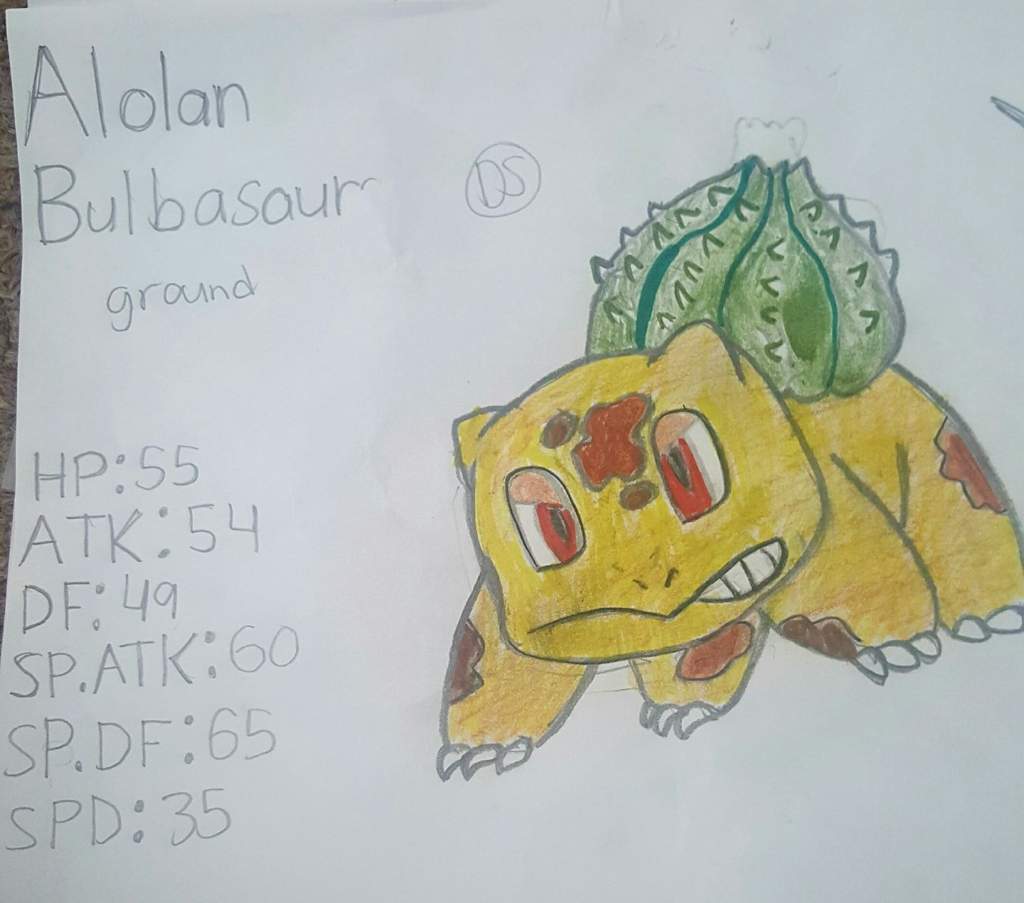 Alolan
Bulbasaur
ground
DS
HP:55
ATK:54
DF:49
SP.ATK:60
SP.DF:65
SPD:35